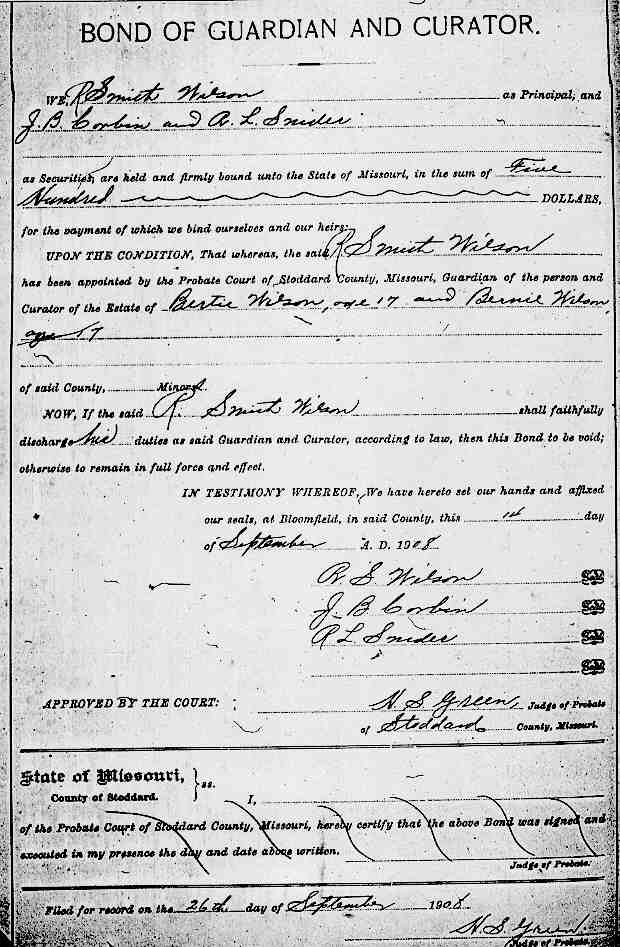 BOND OF GUARDIAN AND CURATOR.
WE, R Smith Wilson as Principal, and
J. B. Corbin and R. L. Snider
as Securities, are held and firmly bound unto the State of Missouri, in the sum of Five
Hundred DOLLARS,
for the payment of which we bind ourselves and our heirs:
UPON THE CONDITION, That whereas, the said R Smith Wilson
has been appointed by the Probate Court of Stoddard County, Missouri, Guardian of the person and
Curator of the Estate of Bertie Wilson, age 17 and Bernie Wilson,
age 17
of said County, Minors.
NOW, If the said R. Smith Wilson shall faithfully
discharge his duties as said Guardian and Curator, according to law, then this Bond to be void;
otherwise to remain in full force and effect.
IN TESTIMONY WHEREOF, We have hereto set our hands and affixed
our seals, at Bloomfield, in said County, this day
of September A. D. 1908
R S Wilson
J. B Corbin
R L Snider
APPROVED BY THE COURT: H S Green, Judge of Probate
of Stoddard County, Missouri.
State of Missouri, } ss.
County of Stoddard. I,
of the Probate Court of Stoddard County, Missouri, hereby certify that the above Bond was signed and
executed in my presence the day and date above written.
Judge of Probate.
Filed for record on the 26th day of September 1908
H. S. Green.
Judge of Probate.